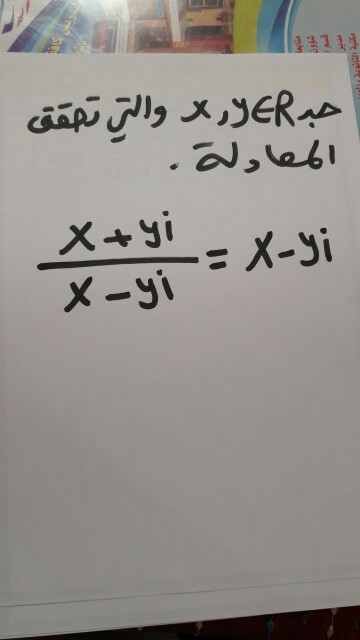 جد x,y∈R والتي تحقق
المعادلة.
x+yi / x-yi = x-yi